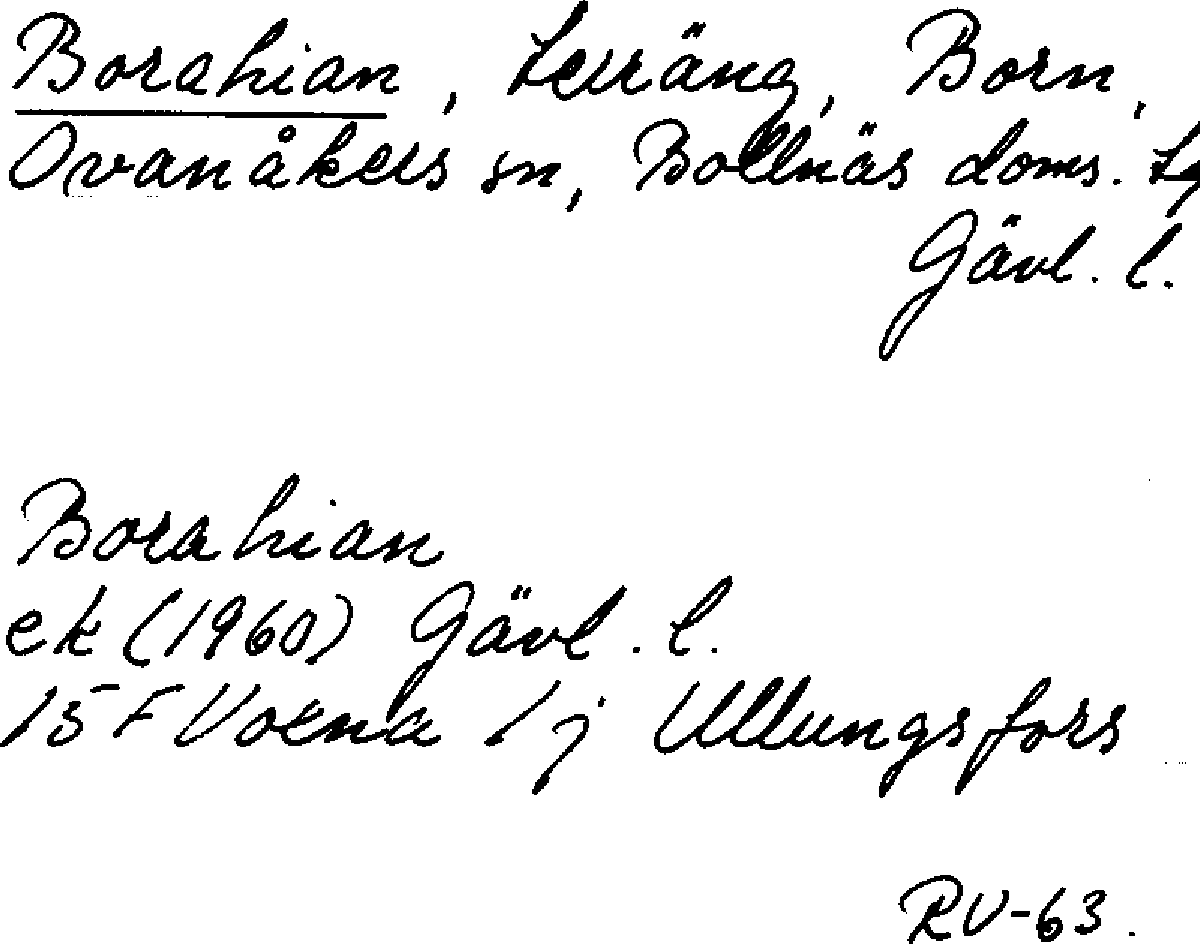 Borahian, terräng, Born,
Ovanåkers sn, Bollnäs doms.
Gävl. l.
Borahian
ek (1960) Gävl. l.
15 F Voxna 1 j Ullungsfors
RV-63.